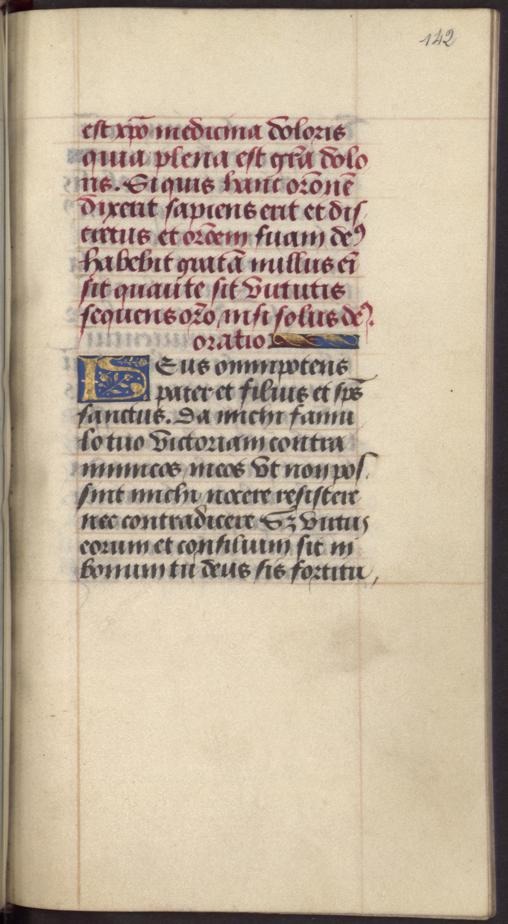 142
est xpo medicina doloris
quia plena est gra dolo
ris. Si quis hanc oronē
dixerit sapiens erit et dis
cretus et orōem suam de⁹
habebit gratā nullus ei
sit quante sit virtutis
sequens oro nisi solus de⁹.
oratio
Deus omnipotens
pater et filius et sps̄
sanctus. Da michi famu
lo tuo victoriam contra
inimicos meos vt non pos
sint michi nocere resistere
nec contradicere Sz virtus
eorum et consilium sit in
bonum tu deus sis fortitu